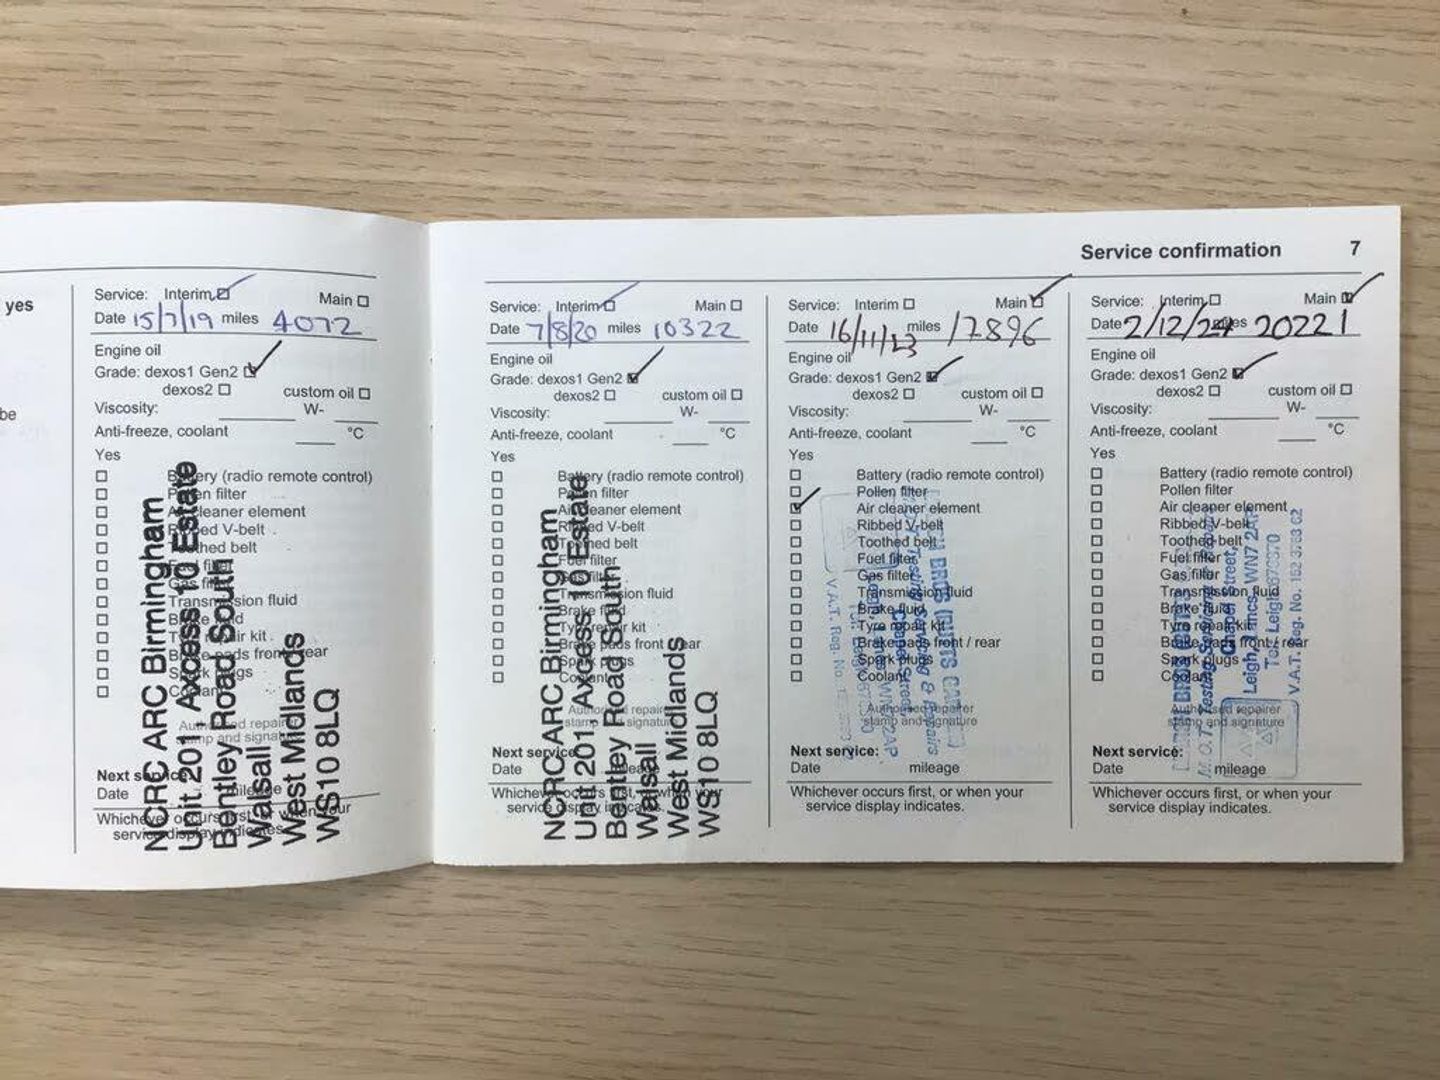 Service confirmation 7
yes
be
Service: Interim Main
Date 15/7/19 miles 4072
Engine oil
Grade: dexos1 Gen2
dexos2 custom oil
Viscosity: W-
Anti-freeze, coolant °C
Yes
Battery (radio remote control)
Pollen filter
Air cleaner element
Ribbed V-belt
Toothed belt
Fuel filter
Gas filter
Transmission fluid
Brake fluid
Tyre repair kit
Brake pads front / rear
Spark plugs
Coolant
Authorised repairer
stamp and signature
NCRC ARC Birmingham
Unit 201 Axcess 10 Estate
Bentley Road South
Walsall
West Midlands
WS10 8LQ
Next service:
Date mileage
Whichever occurs first, or when your
service display indicates.
Service: Interim Main
Date 7/8/20 miles 10322
Engine oil
Grade: dexos1 Gen2
dexos2 custom oil
Viscosity: W-
Anti-freeze, coolant °C
Yes
Battery (radio remote control)
Pollen filter
Air cleaner element
Ribbed V-belt
Toothed belt
Fuel filter
Gas filter
Transmission fluid
Brake fluid
Tyre repair kit
Brake pads front / rear
Spark plugs
Coolant
Authorised repairer
stamp and signature
NCRC ARC Birmingham
Unit 201 Axcess 10 Estate
Bentley Road South
Walsall
West Midlands
WS10 8LQ
Next service:
Date mileage
Whichever occurs first, or when your
service display indicates.
Service: Interim Main
Date 16/11/23 miles 17896
Engine oil
Grade: dexos1 Gen2
dexos2 custom oil
Viscosity: W-
Anti-freeze, coolant °C
Yes
Battery (radio remote control)
Pollen filter
Air cleaner element
Ribbed V-belt
Toothed belt
Fuel filter
Gas filter
Transmission fluid
Brake fluid
Tyre repair kit
Brake pads front / rear
Spark plugs
Coolant
Authorised repairer
stamp and signature
Servicing & Repairs
V.A.T. Reg. No.
Next service:
Date mileage
Whichever occurs first, or when your
service display indicates.
Service: Interim Main
Date 2/12/24 miles 20221
Engine oil
Grade: dexos1 Gen2
dexos2 custom oil
Viscosity: W-
Anti-freeze, coolant °C
Yes
Battery (radio remote control)
Pollen filter
Air cleaner element
Ribbed V-belt
Toothed belt
Fuel filter
Gas filter
Transmission fluid
Brake fluid
Tyre repair kit
Brake pads front / rear
Spark plugs
Coolant
Authorised repairer
stamp and signature
M.O.T. Testing
Chapel Street,
Leigh, Lancs. WN7 2AP
Tel: Leigh
V.A.T. Reg. No. 152
Next service:
Date mileage
Whichever occurs first, or when your
service display indicates.